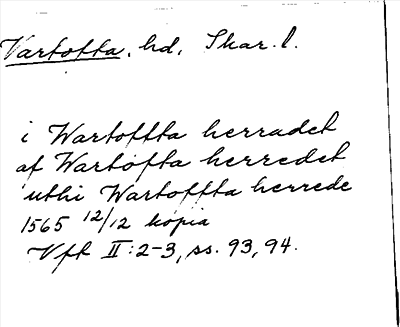 Vartofta, hd, Skar. l.
i Wartoffta herradet
af Wartofta herredet
uthi Wartoffta herrede
1565 12/12 kopia
Vfk II:2-3, ss. 93, 94.